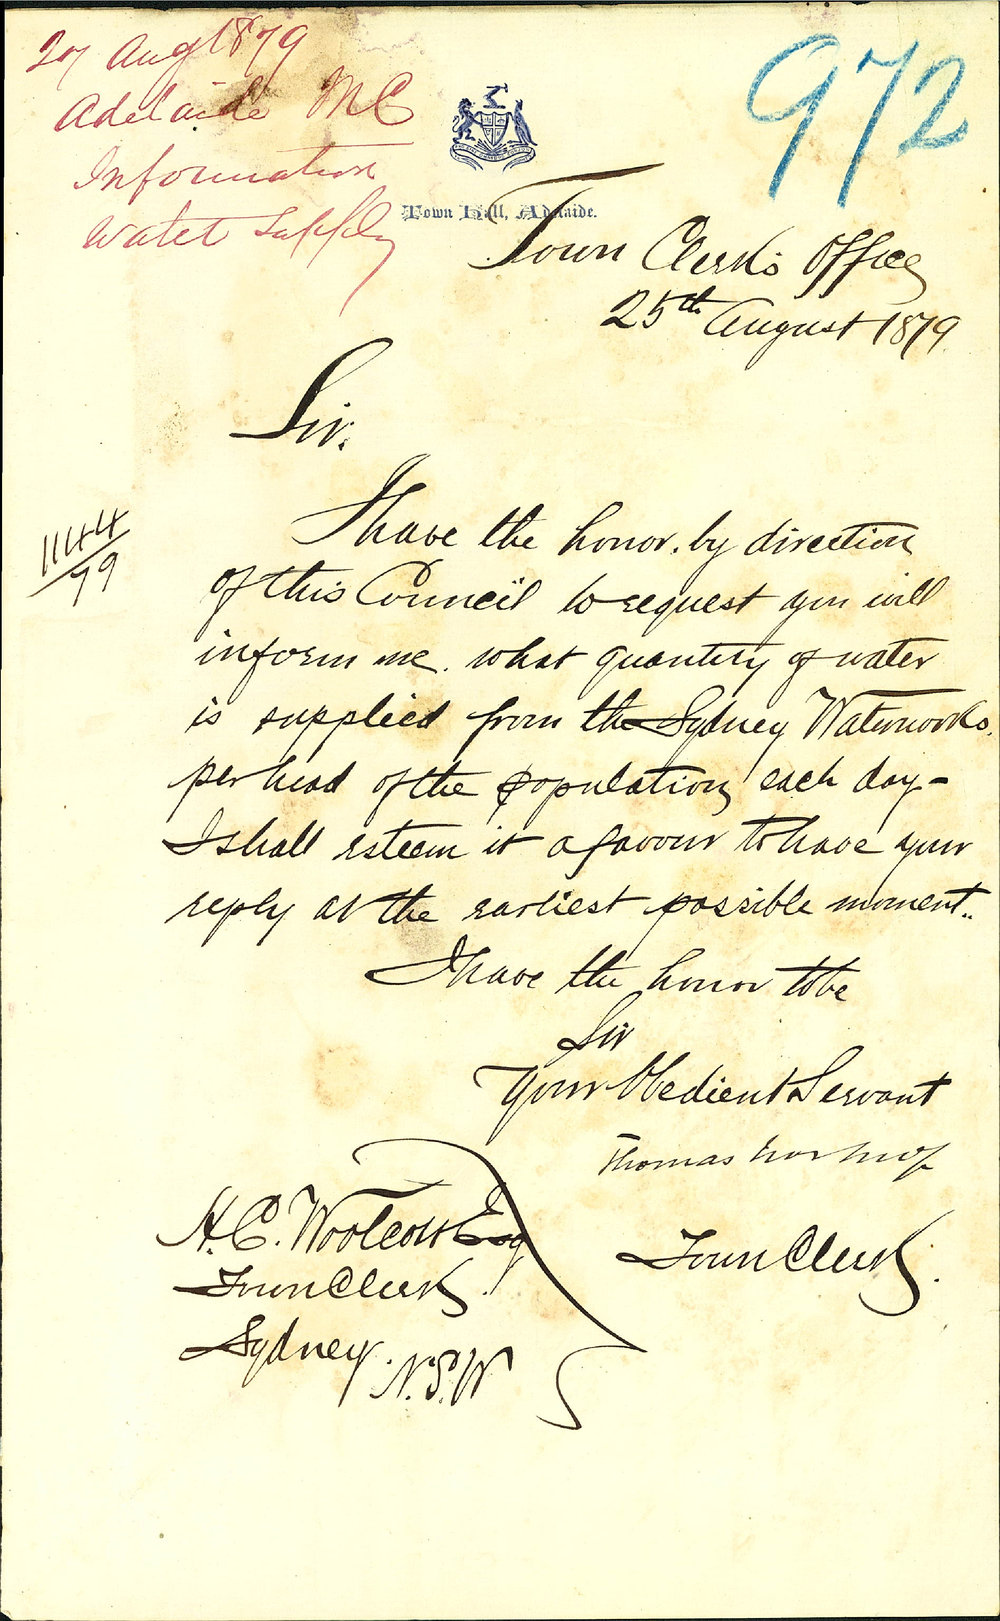 27 Aug 1879
Adelaide MC
Information
Water Supply
972
Town Hall, Adelaide.
Town Clerk's Office
25th August 1879.
Sir,
1144/79
I have the honor, by direction
of this Council to request you will
inform me. what quantity of water
is supplied from the Sydney Waterworks,
per head of the population, each day –
I shall esteem it a favour to have your
reply at the earliest possible moment..
I have the honor to be
Sir
Your Obedient Servant
Thomas Worsnop
Town Clerk.
H. C. Woolcott Esq
Town Clerk
Sydney. N.S.W